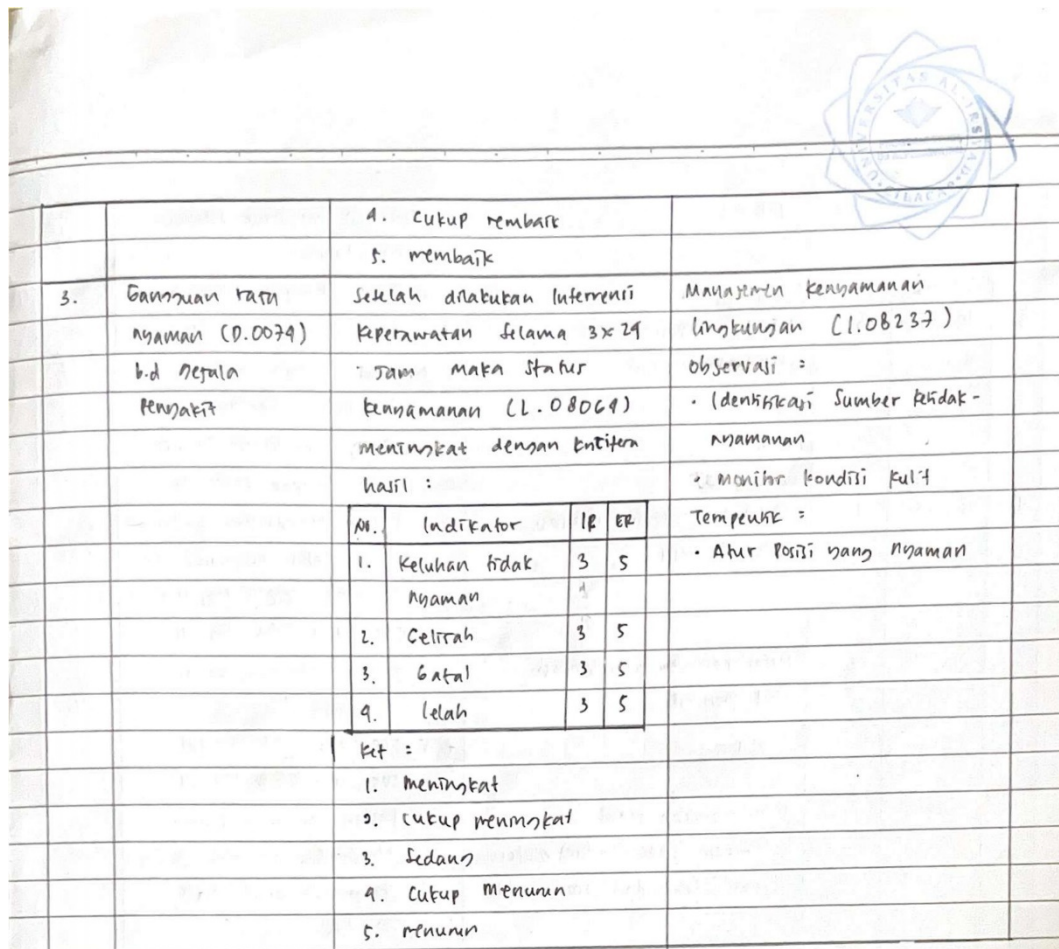 UNIVERSITAS AL-IRSYAD
CILACAP
4. Cukup membaik
5. membaik
3.
Gangguan rasa
nyaman (D.0074)
b.d gejala
penyakit
Setelah dilakukan Intervensi
Keperawatan selama 3x24
Jam Maka Status
kenyamanan (L.08064)
meningkat dengan kritifera
hasil :
No. Indikator IR ER
1. Keluhan tidak 3 5
nyaman
2. Gelisah 3 5
3. Gatal 3 5
4. lelah 3 5
ket :
1. meningkat
2. cukup meningkat
3. Sedang
4. Cukup Menurun
5. menurun
Manajemen kenyamanan
lingkungan (I.08237)
observasi :
• Identifikasi Sumber ketidak-
nyamanan
• monitor kondisi kulit
Terapeutik :
• Atur Posisi yang nyaman